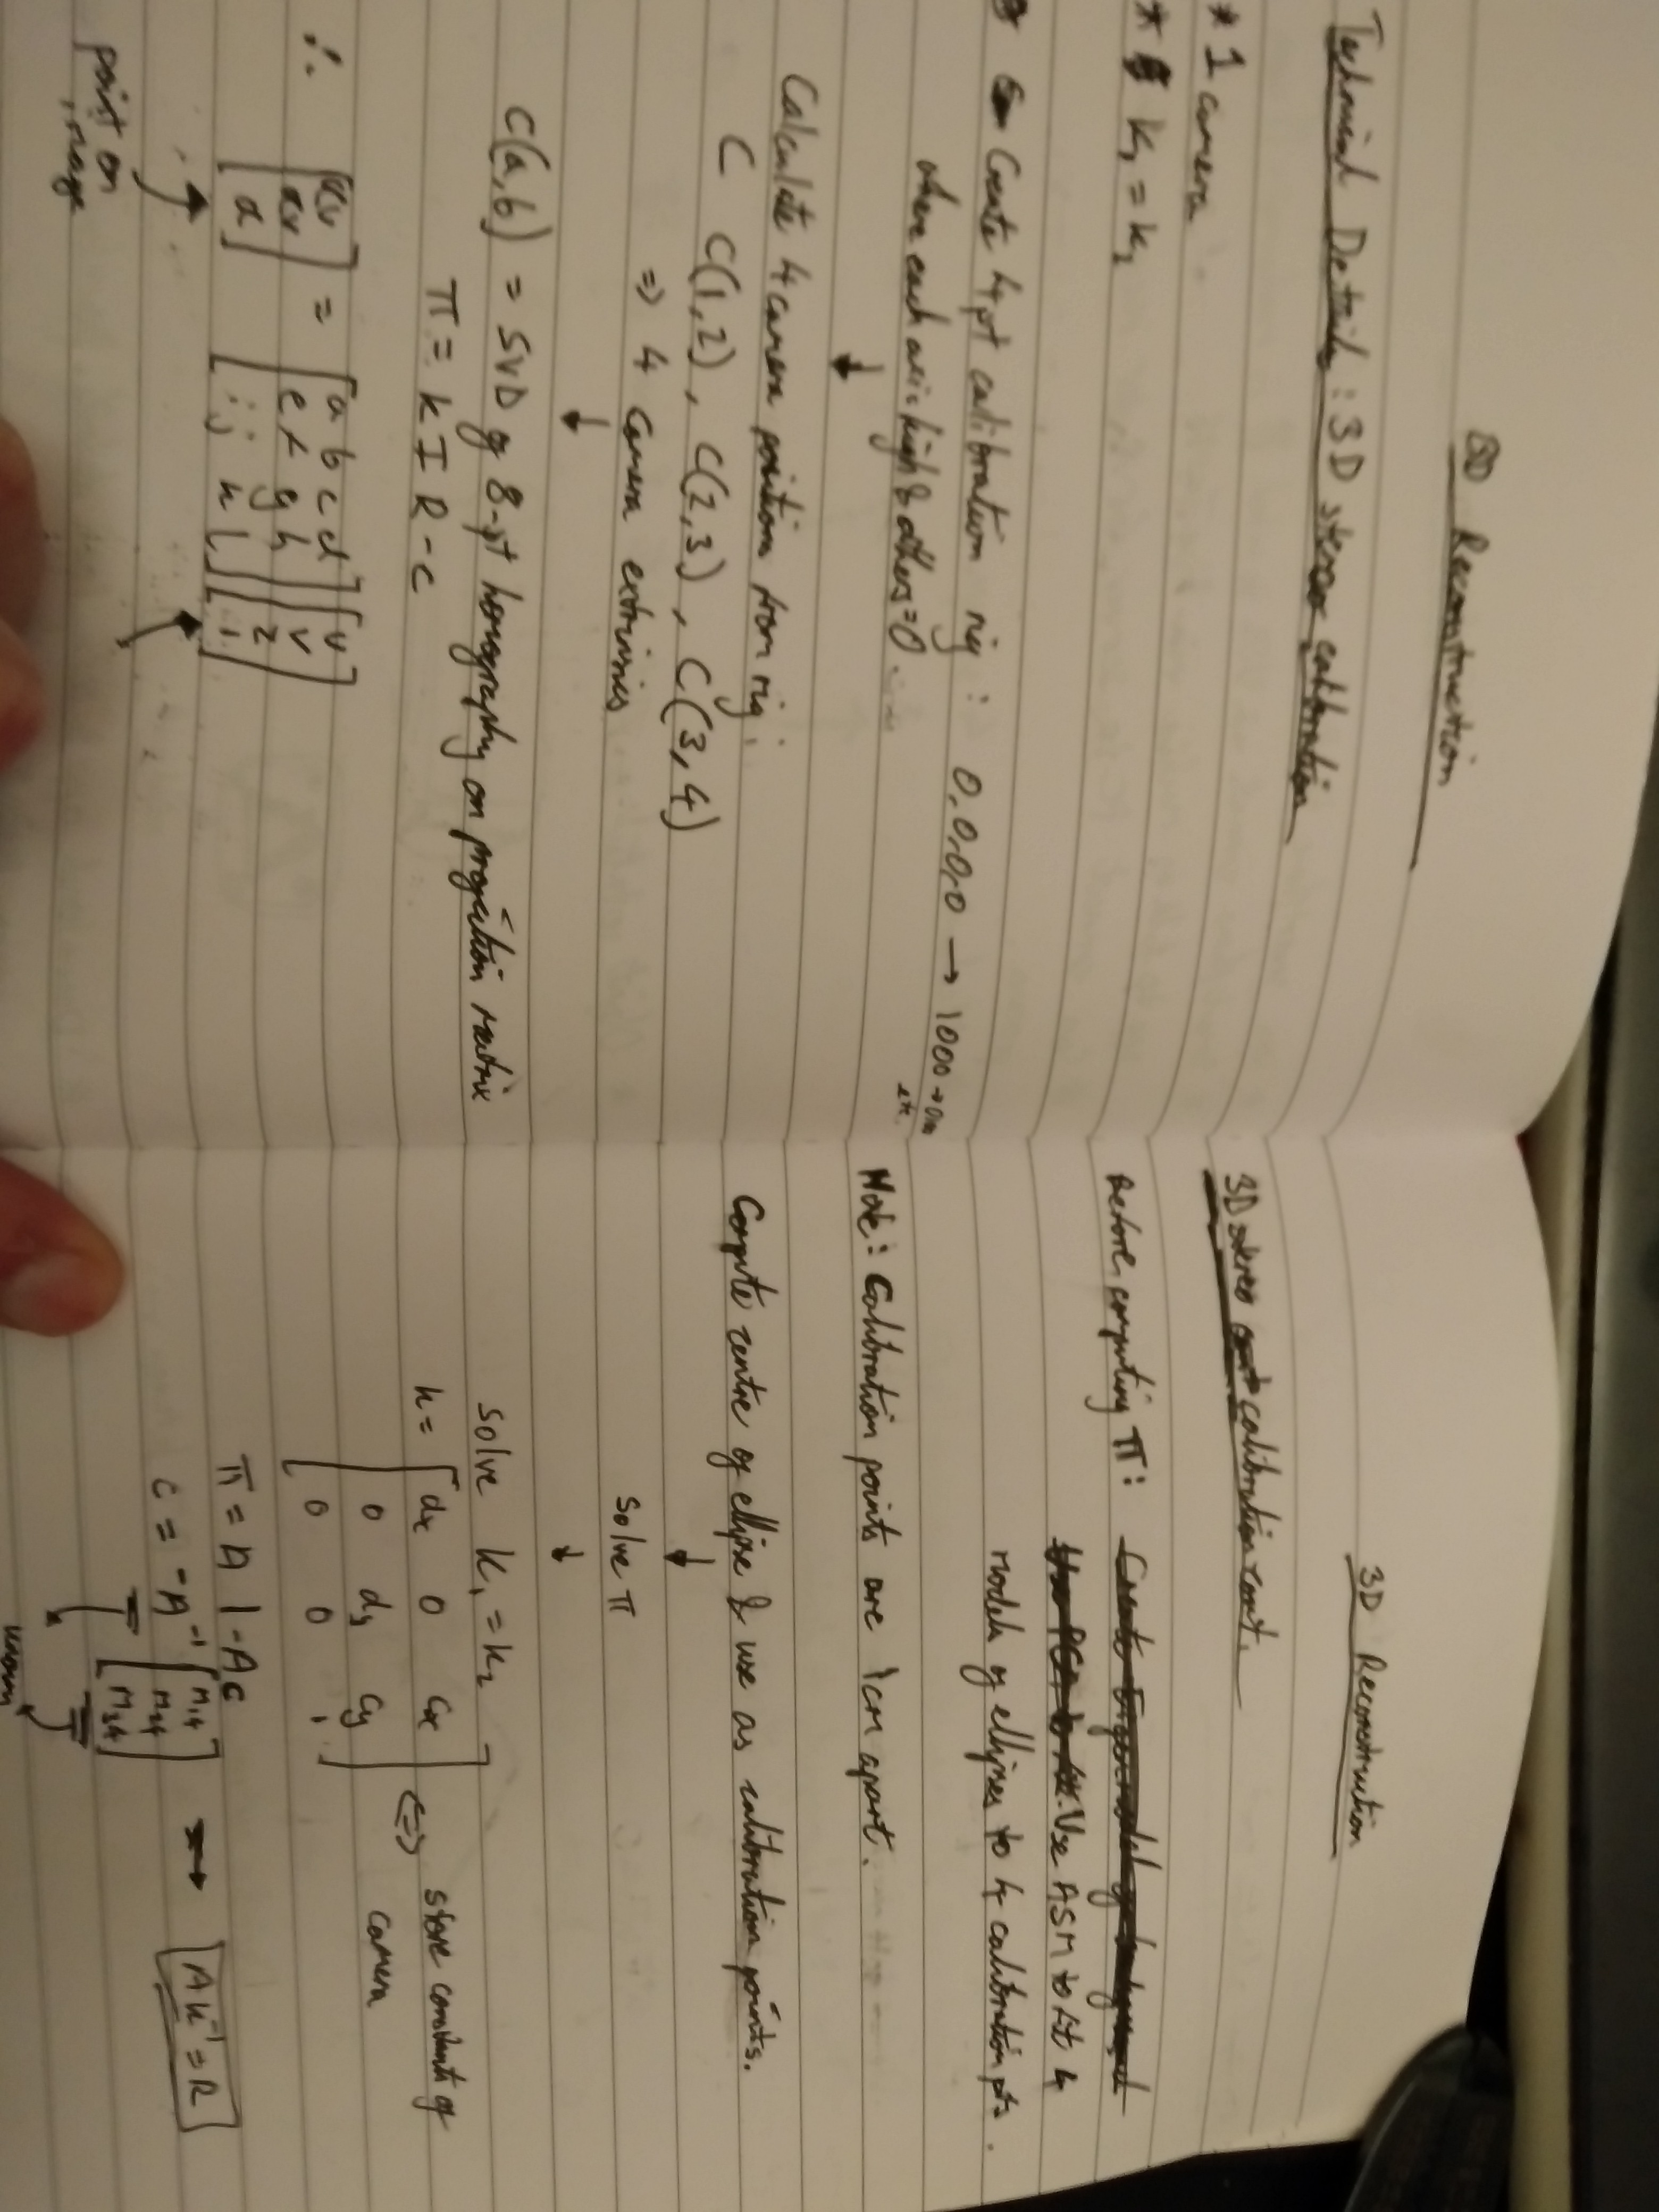 3D Reconstruction
Technical Details: 3D stereo calibration
* 1 camera
* K₁ = K₂
Create 4pt calibration rig : 0,0,0,0 → 1000 →
etc.
where each axis high & others=0
↓
Calculate 4 camera positions from rig:
C C(1,2), C(2,3), C(3,4)
=> 4 camera extrinsics
↓
C(a,b) = SVD of 8-pt homography on projection matrix
π = K I R - c
∴ [αu αv α] = [a b c d e f g h i j k l] [u v z 1]
point on
image
3D Reconstruction
3D stereo calibration cont.
Before computing π: Create Eigenmodel of background
Use PCA to Use ASM to fit 4
models of ellipses to 4 calibration pts.
Note: Calibration points are 1cm apart.
Compute centre of ellipse & use as calibration points.
↓
Solve π
↓
solve K₁ = K₂
K = [dx 0 Cx 0 dy Cy 0 0 1] <=> store constants of
camera
π = A | -Ac
c = -A⁻¹ [M14 M24 M34] → AK⁻¹ = R